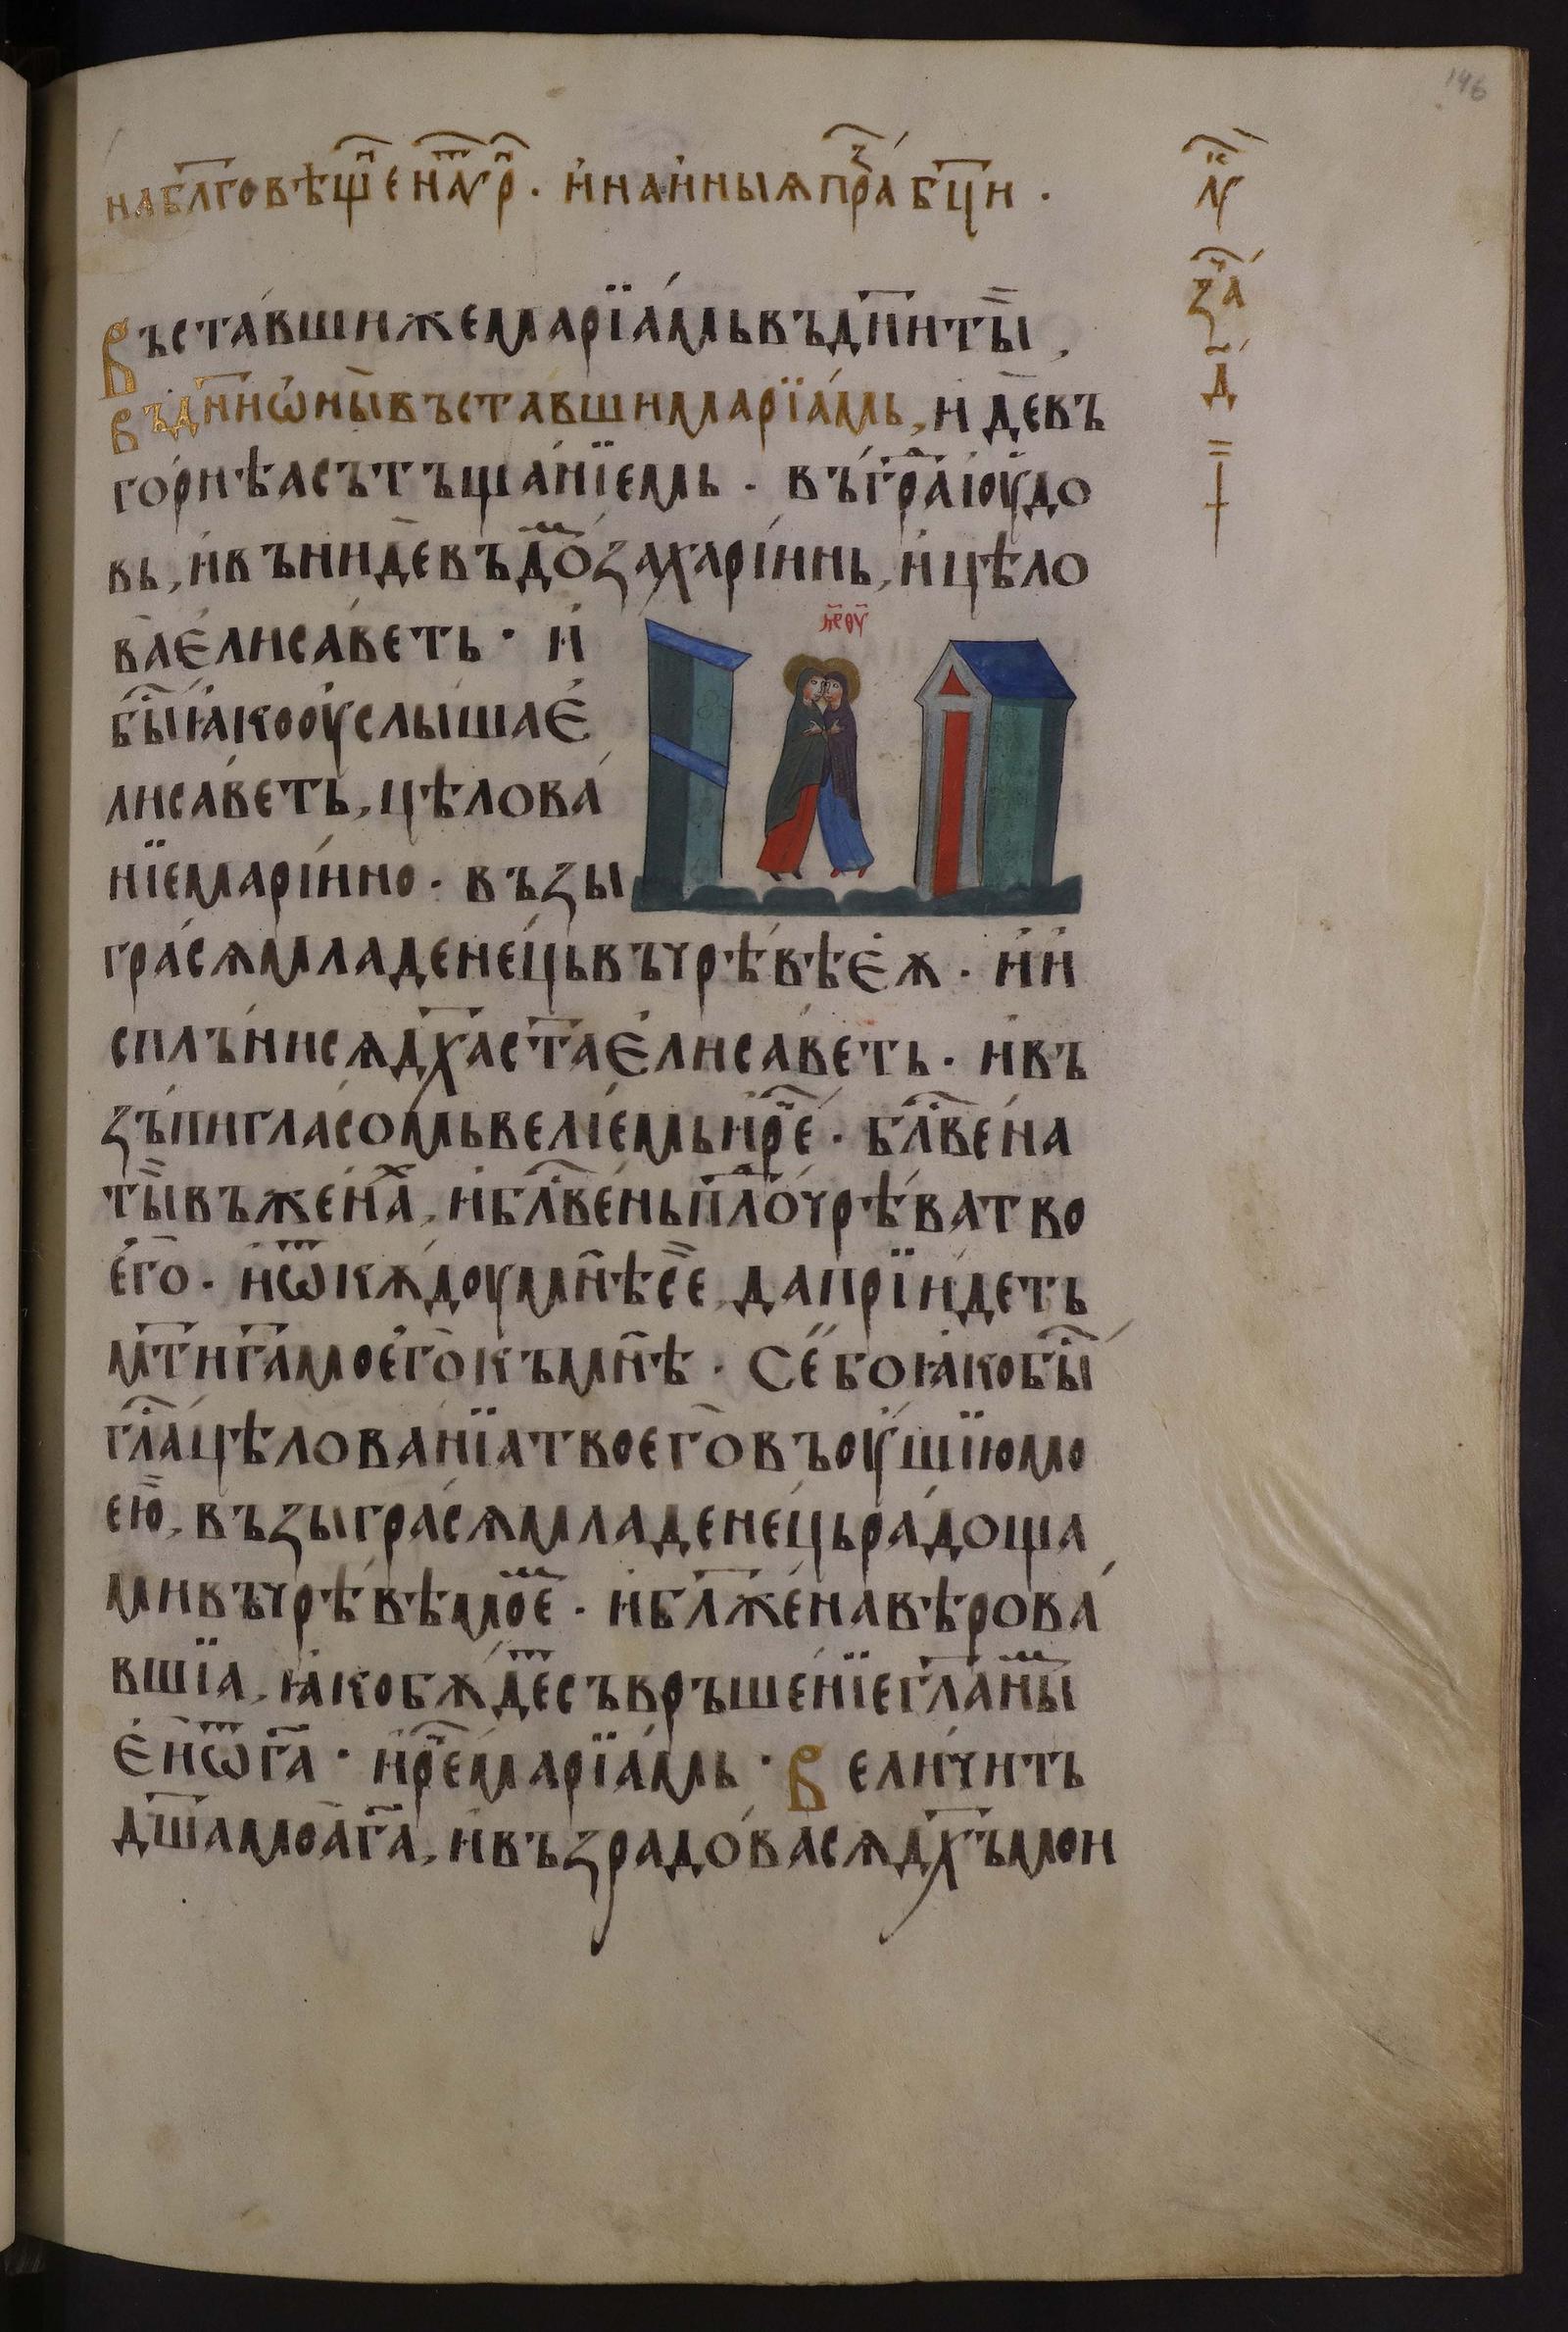 146
на бл҃говѣщ҇ен꙯ ѹ҆тр҇ . и҆ на и҆ны ѧ пра꙯ бц҃и .
лѹ꙯к
за꙯ч
д҃
въста́вши же марїа́мь въ дн҃и ты̏ ,
въ дн҃и ѡ҆ны въставши марїа́мь, и҆де въ
го́рнѣа съ тъща́нїемь . въ гра꙯ і҆оу́до
вь, и҆ вънидѐ въ до꙯м заха́рїинь, и҆ цѣло
ва̀ є҆лиса́веть . и҆
бы꙯с ꙗ҆́ко оу҆слы́ша є҆
лиса́веть, цѣлова́
нїе марі́ино . възы
гра́ сѧ младене́ць въ чрѣ́вѣ є҆ѧ . и҆ и҆
спл́ъни сѧ дх҃а ст҃а є҆лиса́веть . и҆ въ
зъпи гла́сомь ве́лїемь и҆ ре꙯ч . бл҃ве́на
ты̏ въ жена꙯х, и҆ бл҃ве́нь пло꙯д чрѣ́ва тво
е҆го̀ . и҆ ѿ кѫ́доу мнѣ̀ се̏, да прїи́деть
мт҃и г҃а моего̀ къ мнѣ̀ . Се́ бо ꙗ҆ко бы꙯с
гл҃а цѣлова́нїа твоего̀ въ оу҆́шїю мо
ею̏, възыгра́ сѧ младене́ць ра́доща
ми въ чрѣ́вѣ мое꙯м . и҆ бл҃же́на вѣрова́
вшїа, ꙗ҆́ко бѫ́де꙯т съвръше́нїе гл҃аны꙯м
е҆и ѿ г҃а . и҆ ре꙯ч марїа́мь . Вели́чить
дш҃а моа̀ г҃а, и҆ възра́дова сѧ дх҃ъ мои